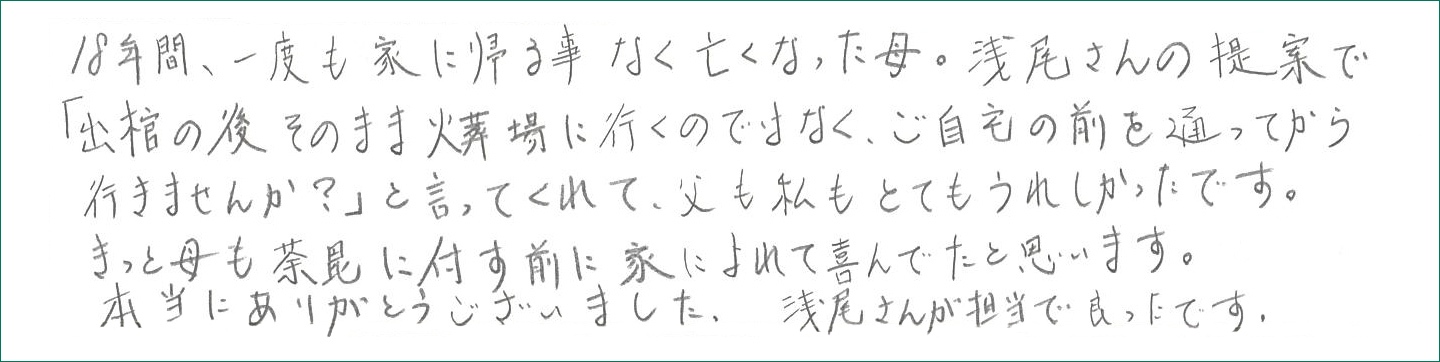 18年間、一度も家に帰る事なく亡くなった母。浅尾さんの提案で
「出棺の後そのまま火葬場に行くのではなく、ご自宅の前を通ってから
行きませんか?」と言ってくれて、父も私もとてもうれしかったです。
きっと母も荼毘に付す前に家によれて喜んでたと思います。
本当にありがとうございました. 浅尾さんが担当で良ったです.